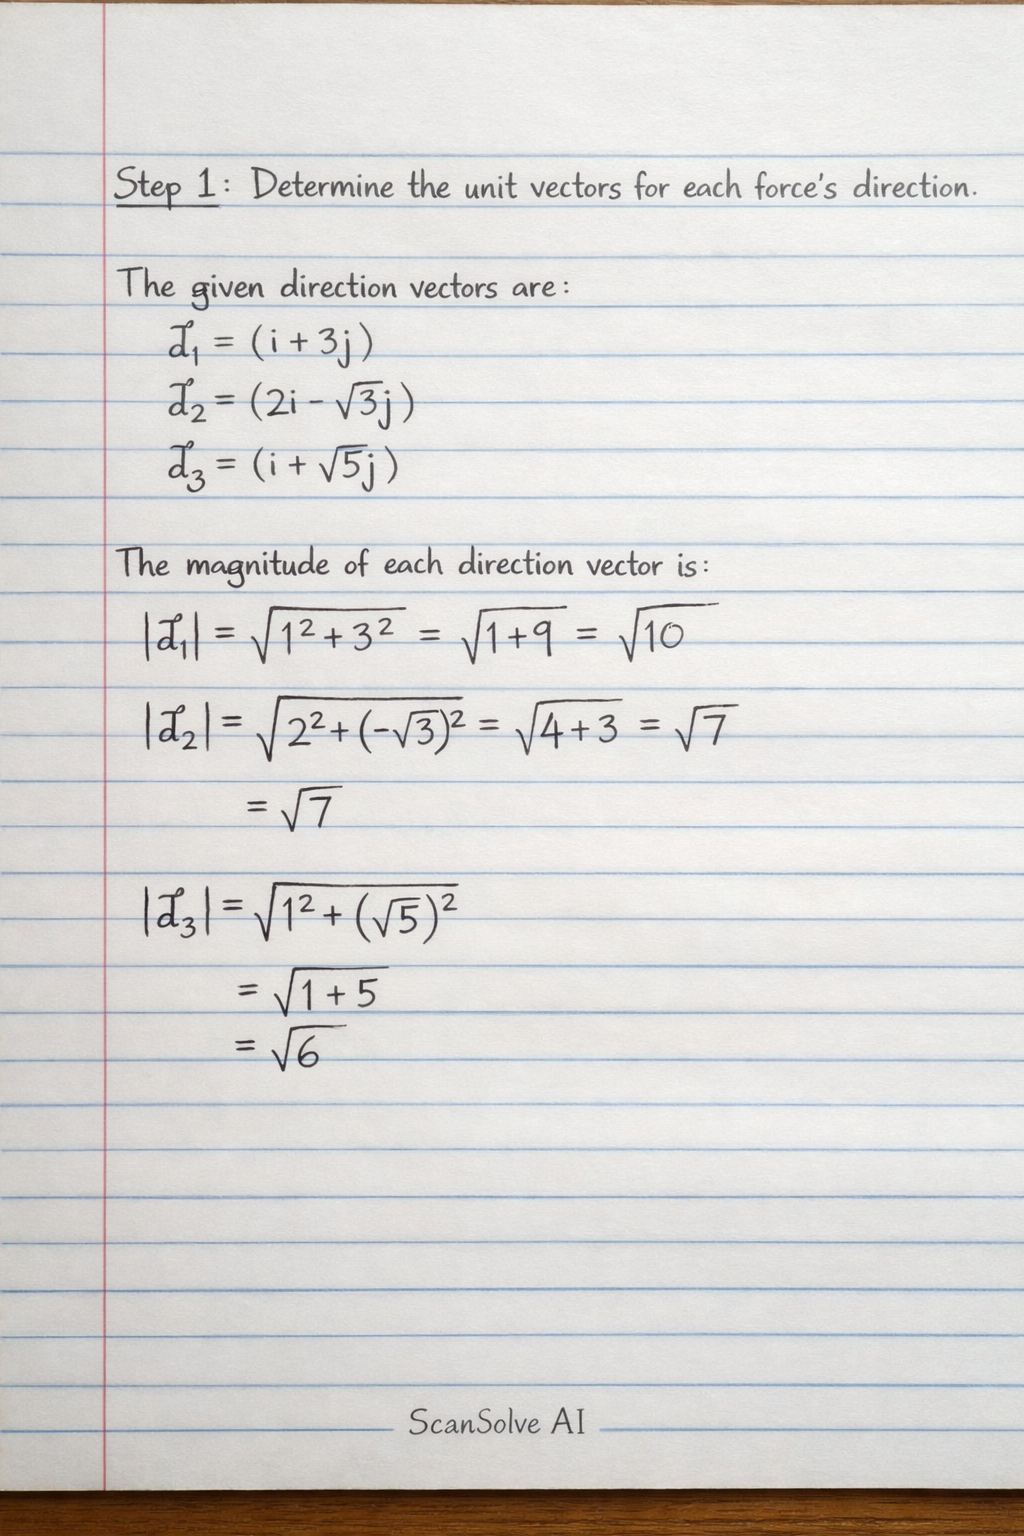 Step 1: Determine the unit vectors for each force's direction.
The given direction vectors are:
d⃗₁ = (i + 3j)
d⃗₂ = (2i - √3j)
d⃗₃ = (i + √5j)
The magnitude of each direction vector is:
|d⃗₁| = √(1² + 3²) = √(1+9) = √10
|d⃗₂| = √(2² + (-√3)²) = √(4+3) = √7
= √7
|d⃗₃| = √(1² + (√5)²)
= √(1 + 5)
= √6
ScanSolve AI